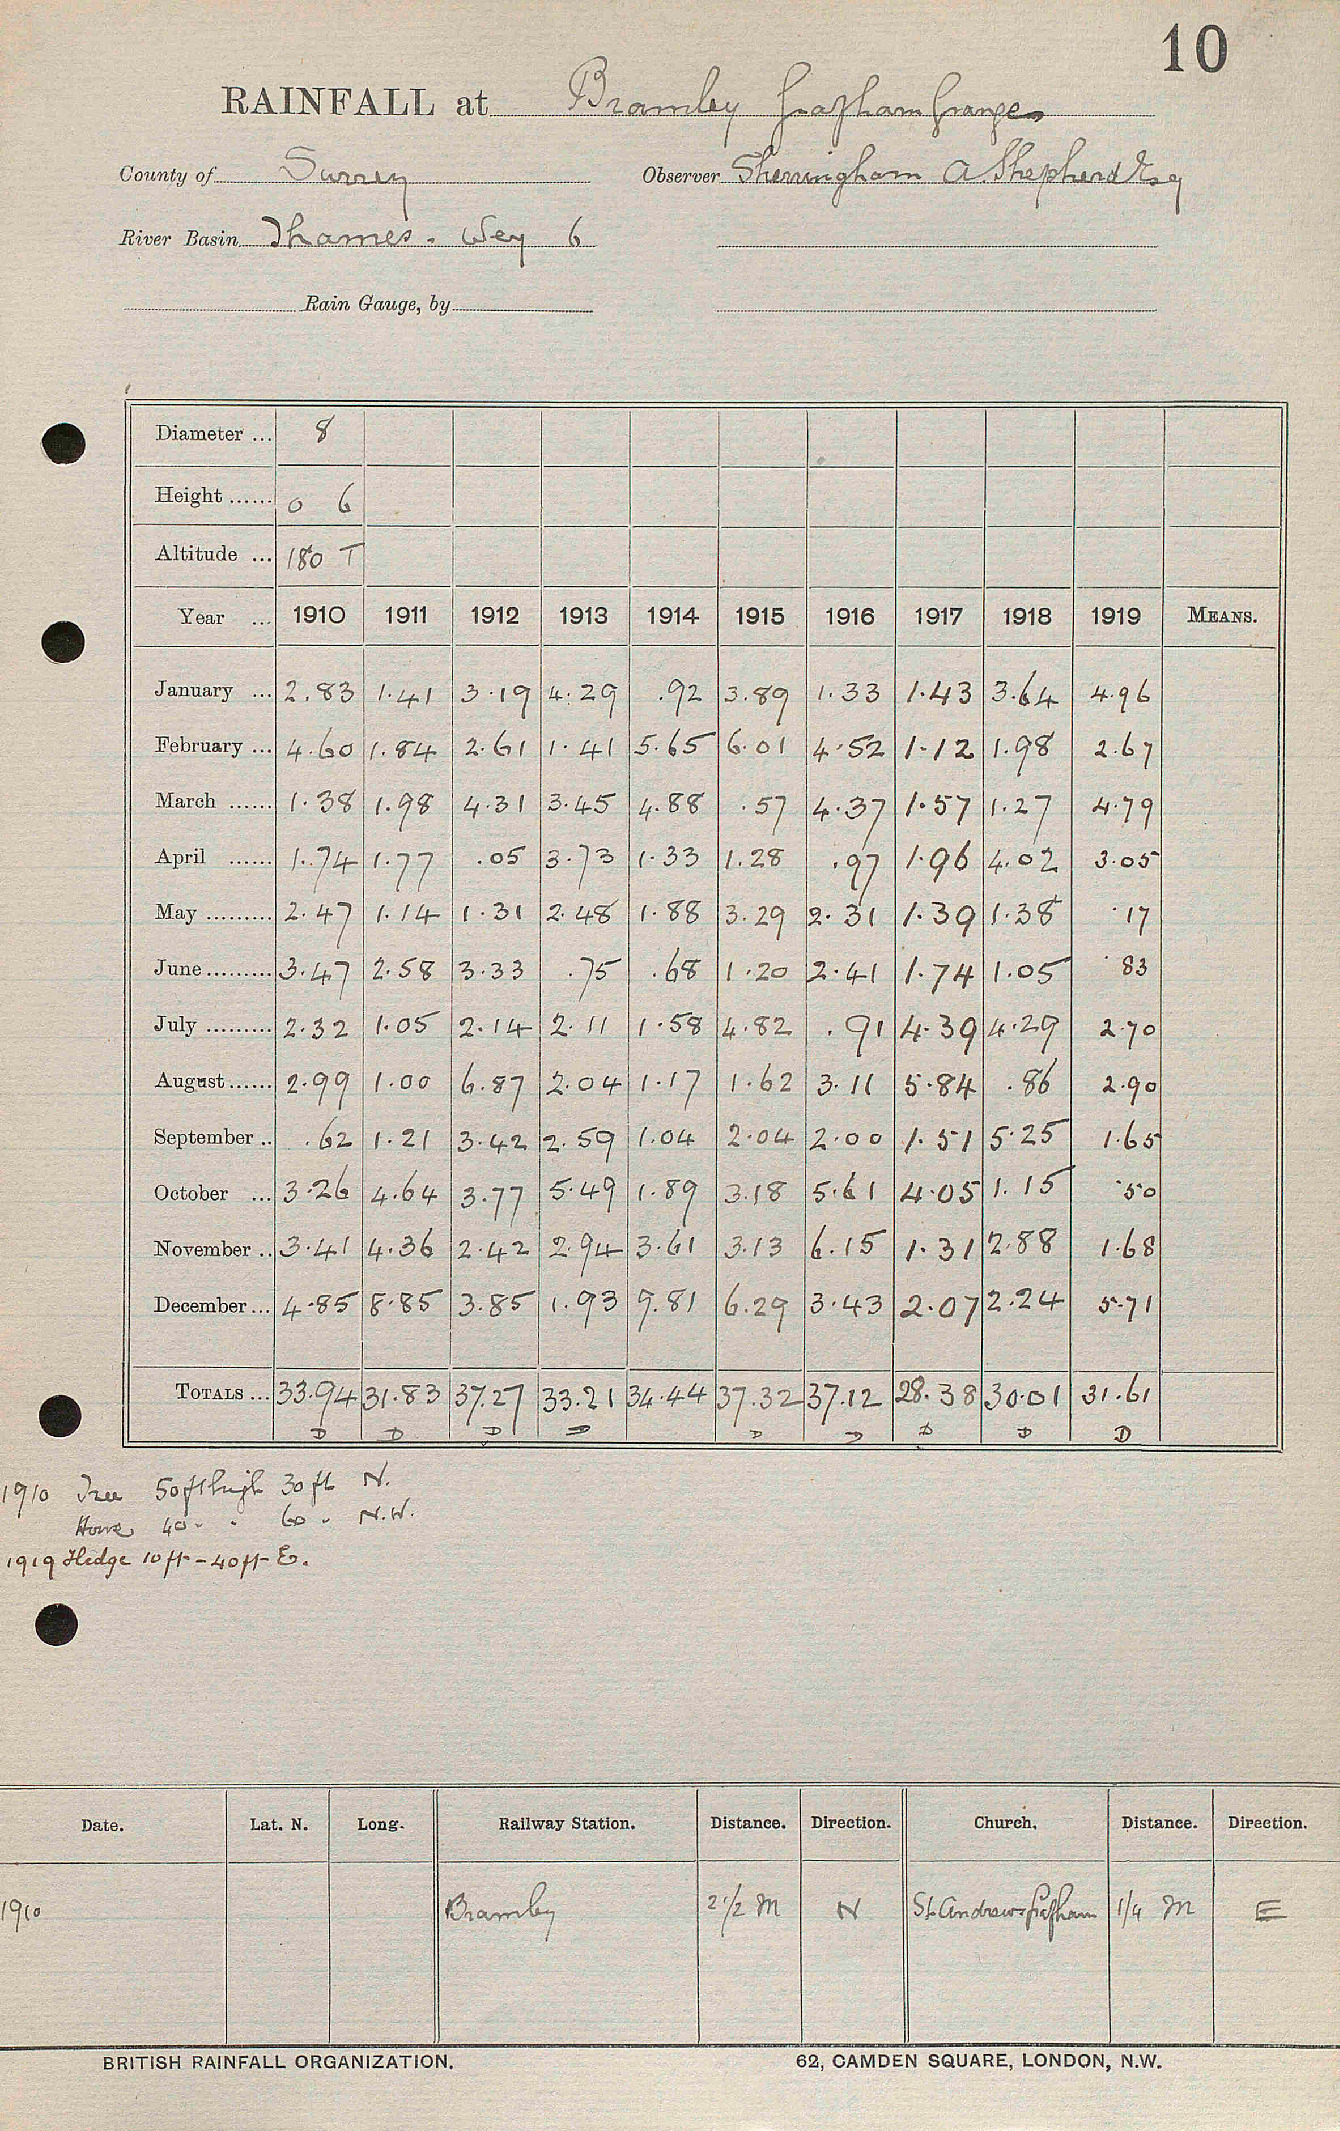 10
RAINFALL at Bramley Grafham Grange
County of Surrey Observer Sherringham A. Shepherd Esq
River Basin Thames - Wey 6
Rain Gauge, by
Diameter ... 8
Height ...... 0 6
Altitude ... 180 T
Year ... 1910 1911 1912 1913 1914 1915 1916 1917 1918 1919 MEANS.
January ... 2.83 1.41 3.19 4.29 .92 3.89 1.33 1.43 3.64 4.96
February ... 4.60 1.84 2.61 1.41 5.65 6.01 4.52 1.12 1.98 2.67
March ...... 1.38 1.98 4.31 3.45 4.88 .57 4.37 1.57 1.27 4.79
April ...... 1.74 1.77 .05 3.73 1.33 1.28 .97 1.96 4.02 3.05
May ......... 2.47 1.14 1.31 2.48 1.88 3.29 2.31 1.39 1.38 .17
June ......... 3.47 2.58 3.33 .75 .68 1.20 2.41 1.74 1.05 .83
July ......... 2.32 1.05 2.14 2.11 1.58 4.82 .91 4.39 4.29 2.70
August ...... 2.99 1.00 6.87 2.04 1.17 1.62 3.11 5.84 .86 2.90
September .. .62 1.21 3.42 2.59 1.04 2.04 2.00 1.51 5.25 1.65
October ... 3.26 4.64 3.77 5.49 1.89 3.18 5.61 4.05 1.15 .50
November .. 3.41 4.36 2.42 2.94 3.61 3.13 6.15 1.31 2.88 1.68
December ... 4.85 8.85 3.85 1.93 9.81 6.29 3.43 2.07 2.24 5.71
TOTALS ... 33.94 31.83 37.27 33.21 34.44 37.32 37.12 28.38 30.01 31.61
D D D D D D D D D
1910 Tree 50 ft high 30 ft N.
House 40 " " 60 " N.W.
1919 Hedge 10 ft - 40 ft E.
Date. Lat. N. Long. Railway Station. Distance. Direction. Church. Distance. Direction.
1910 Bramley 2 1/2 M N St. Andrews Grafham 1/4 M E
BRITISH RAINFALL ORGANIZATION. 62, CAMDEN SQUARE, LONDON, N.W.